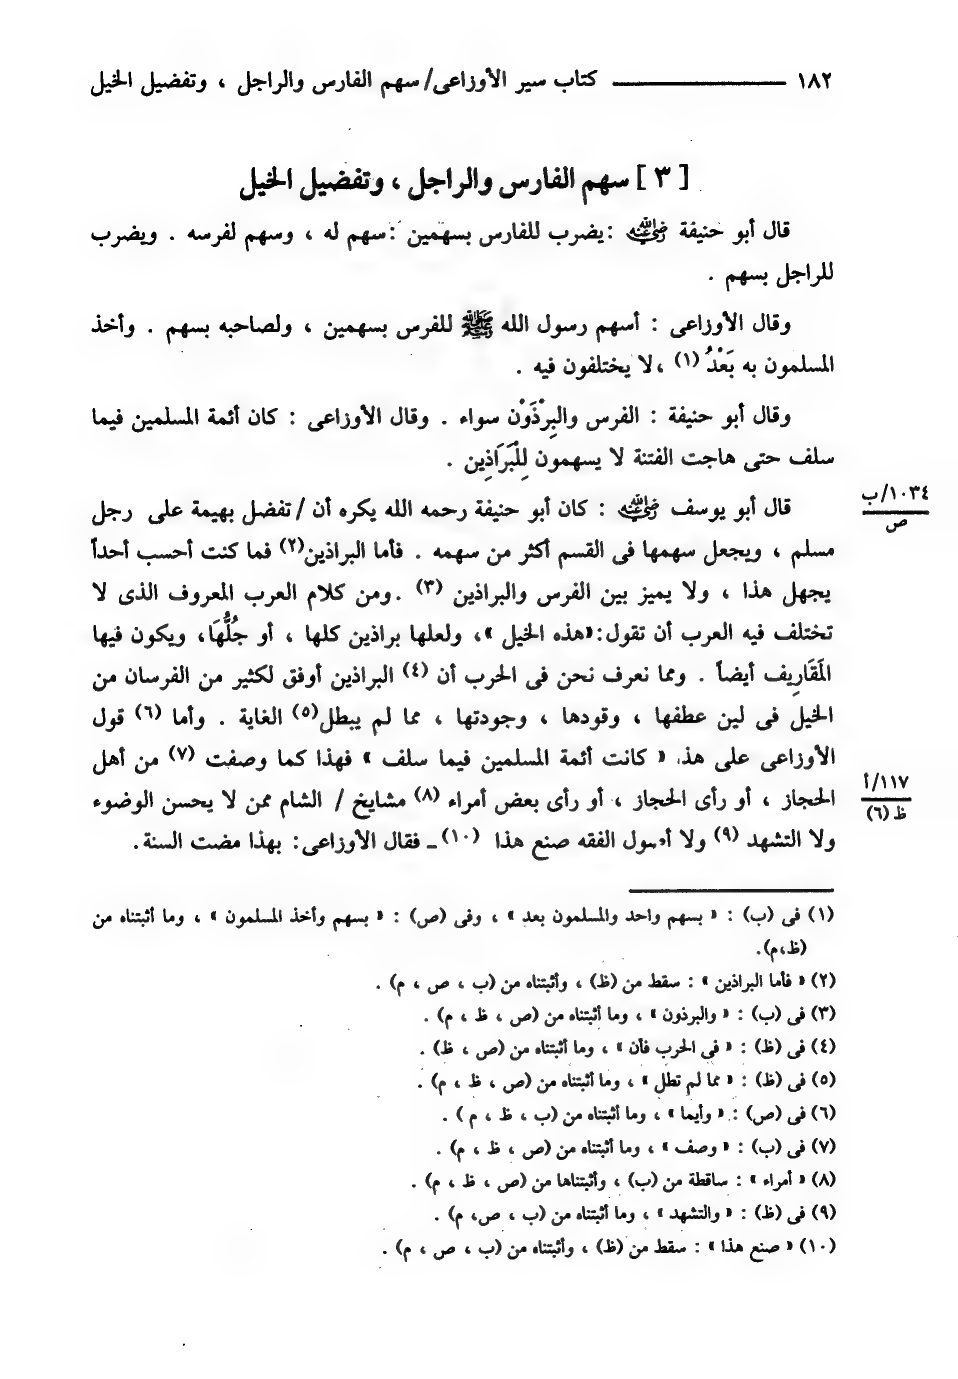 ١٨٢ ــــــــــــ كتاب سير الأوزاعى/ سهم الفارس والراجل ، وتفضيل الخيل
[ ٣ ] سهم الفارس والراجل ، وتفضيل الخيل
قال أبو حنيفة رضي الله عنه : يضرب للفارس بسهمين : سهم له ، وسهم لفرسه . ويضرب
للراجل بسهم .
وقال الأوزاعى : أسهم رسول الله ﷺ للفرس بسهمين ، ولصاحبه بسهم . وأخذ
المسلمون به بَعْدُ (١) ، لا يختلفون فيه .
وقال أبو حنيفة : الفرس والبِرْذَوْن سواء . وقال الأوزاعى : كان أئمة المسلمين فيما
سلف حتى هاجت الفتنة لا يسهمون لِلْبَرَاذِين .
قال أبو يوسف رضي الله عنه : كان أبو حنيفة رحمه الله يكره أن / تفضل بهيمة على رجل
١٠٣٤/ب
ص
مسلم ، ويجعل سهمها فى القسم أكثر من سهمه . فأما البراذين(٢) فما كنت أحسب أحداً
يجهل هذا ، ولا يميز بين الفرس والبراذين (٣) . ومن كلام العرب المعروف الذى لا
تختلف فيه العرب أن تقول : «هذه الخيل » ، ولعلها براذين كلها ، أو جُلُّهَا، ويكون فيها
المَقَارِيف أيضاً . ومما نعرف نحن فى الحرب أن (٤) البراذين أوفق لكثير من الفرسان من
الخيل فى لين عطفها ، وقودها ، وجودتها ، مما لم يبطل(٥) الغاية . وأما (٦) قول
الأوزاعى على هذا « كانت أئمة المسلمين فيما سلف » فهذا كما وصفت (٧) من أهل
الحجاز ، أو رأى الحجاز ، أو رأى بعض أمراء (٨) مشايخ / الشام ممن لا يحسن الوضوء
١١٧/أ
ظ (٦)
ولا التشهد (٩) ولا أصول الفقه صنع هذا (١٠) ـ فقال الأوزاعى : بهذا مضت السنة .
(١) فى (ب) : « بسهم واحد والمسلمون بعد » ، وفى (ص) : « بسهم وأخذ المسلمون » ، وما أثبتناه من
(ظ،م).
(٢) « فأما البراذين » : سقط من (ظ) ، وأثبتناه من (ب ، ص ، م) .
(٣) فى (ب) : « والبرذون » ، وما أثبتناه من (ص ، ظ ، م) .
(٤) فى (ظ) : « فى الحرب فأن » ، وما أثبتناه من (ص ، ظ) .
(٥) فى (ظ) : « مما لم تطل » ، وما أثبتناه من (ص ، ظ ، م) .
(٦) فى (ص) : « وأيما » ، وما أثبتناه من (ب ، ظ ، م ) .
(٧) فى (ب) : « وصف » ، وما أثبتناه من (ص ، ظ ، م) .
(٨) « أمراء » : ساقطة من (ب) ، وأثبتناها من (ص ، ظ ، م) .
(٩) فى (ظ) : « والتشهد » ، وما أثبتناه من (ب ، ص، م) .
(١٠) « صنع هذا » : سقط من (ظ) ، وأثبتناه من (ب ، ص ، م) .